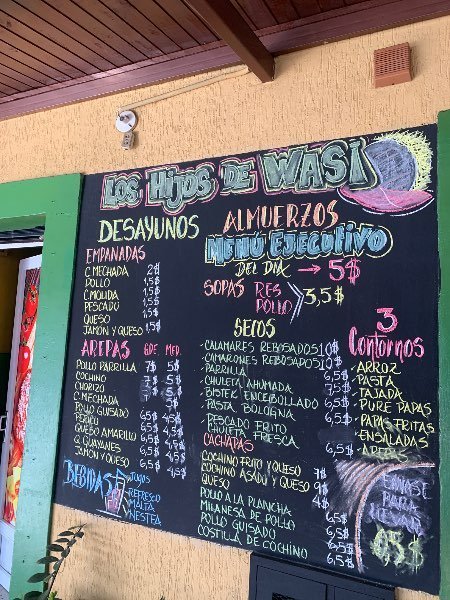 LOS HIJOS DE WASI
DESAYUNOS
EMPANADAS
C. MECHADA 2$
POLLO 1,5$
C. MOLIDA 1,5$
PESCADO 1,5$
QUESO
JAMON Y QUESO 1,5$
AREPAS GDE MED.
POLLO PARRILLA 7$ 5$
COCHINO 7$ 5$
CHORIZO
C. MECHADA
POLLO GUISADO 6,5$ 4,5$
PERICO 6,5$ 4,5$
QUEBO AMARILLO 6,5$ 4,5$
Q. GUAYANES 6,5$ 4,5$
JAMÓN Y QUESO 6,5$ 4,5$
BEBIDAS
JUGOS
REFRESCO
MALTA
NESTEA
ALMUERZOS
MENÚ EJECUTIVO
DEL DÍA → 5$
SOPAS RES
POLLO 3,5$
SECOS
- CALAMARES REBOSADOS 10$
- CAMARONES REBOSADOS 10$
- PARRILLA
- CHULETA AHUMADA
- BISTEK ENCEBOLLADO
- PASTA BOLOGNA
- PESCADO FRITO
- CHULETA FRESCA
CACHAPAS
COCHINO FRITO Y QUESO
COCHINO ASADO Y QUESO 9$
QUESO 4$
POLLO A LA PLANCHA
MILANESA DE POLLO
POLLO GUISADO
COSTILLA DE COCHINO
3
Contornos
- ARROZ
- PASTA
- TAJADA
- PURE PAPAS
- PAPAS FRITAS
- ENSALADAS
- AREPAS
ENVASE
PARA
LLEVAR
0,5$